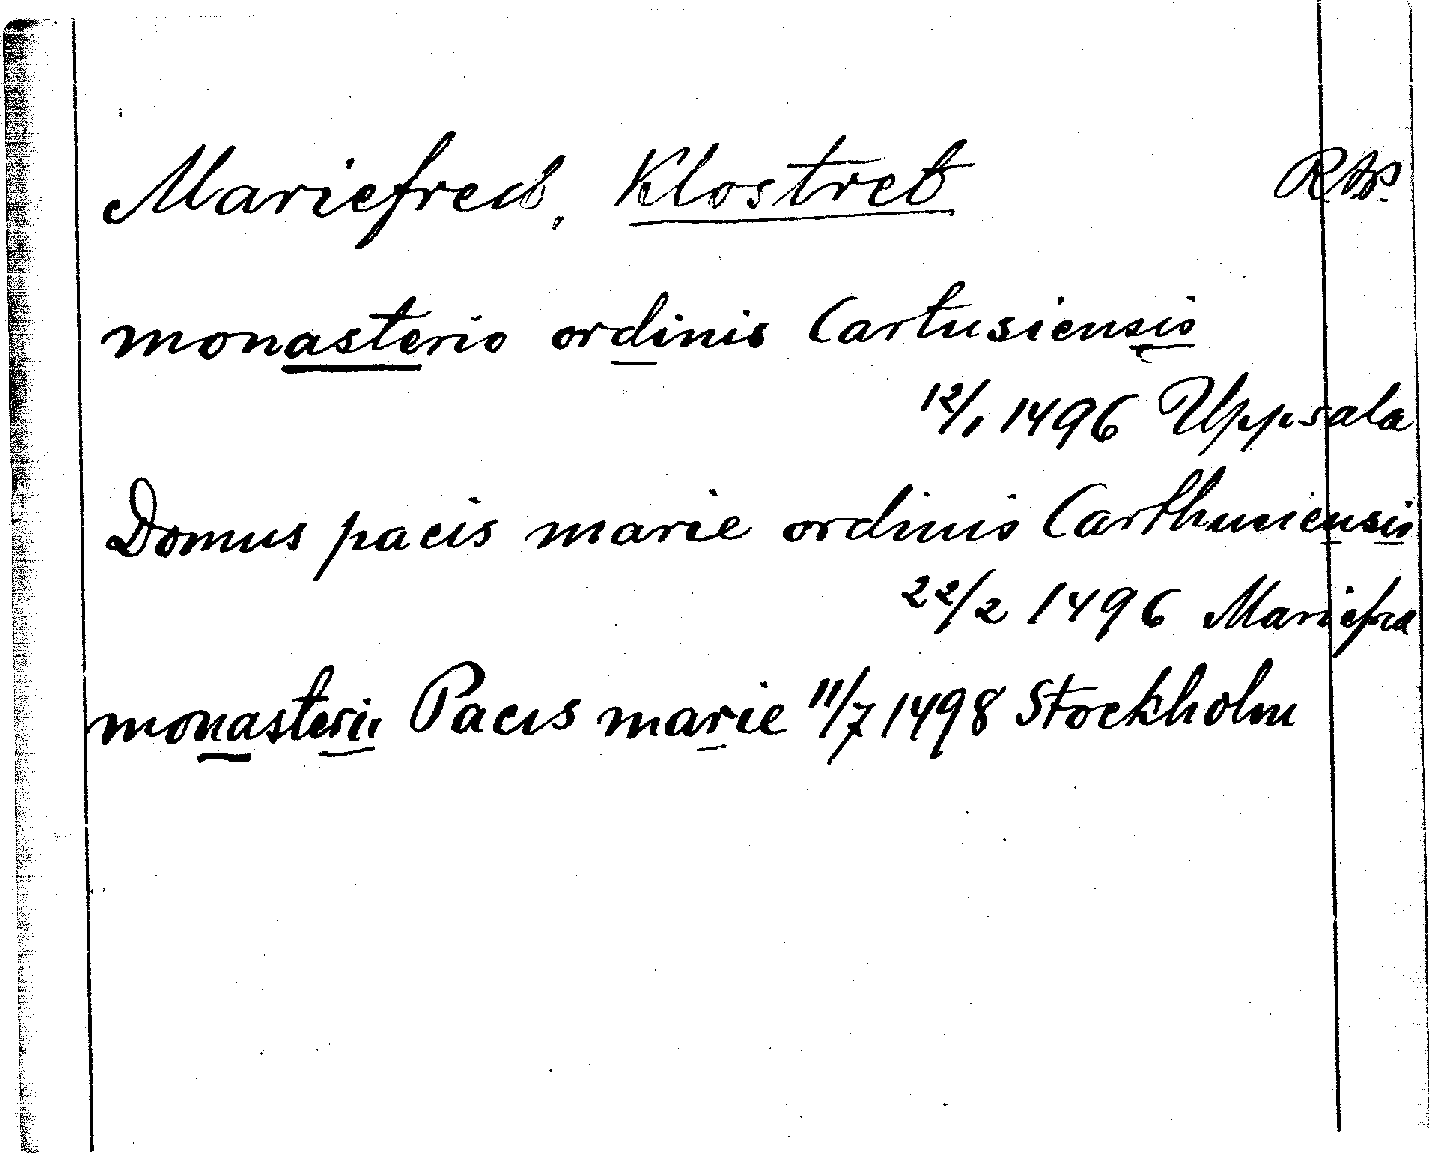 Mariefred, Klostret RAP.
monasterio ordinis Cartusiensis
12/1 1496 Uppsala
Domus pacis marie ordinis Carthusiensis
22/2 1496 Mariefred
monasterii Pacis marie 11/7 1498 Stockholm